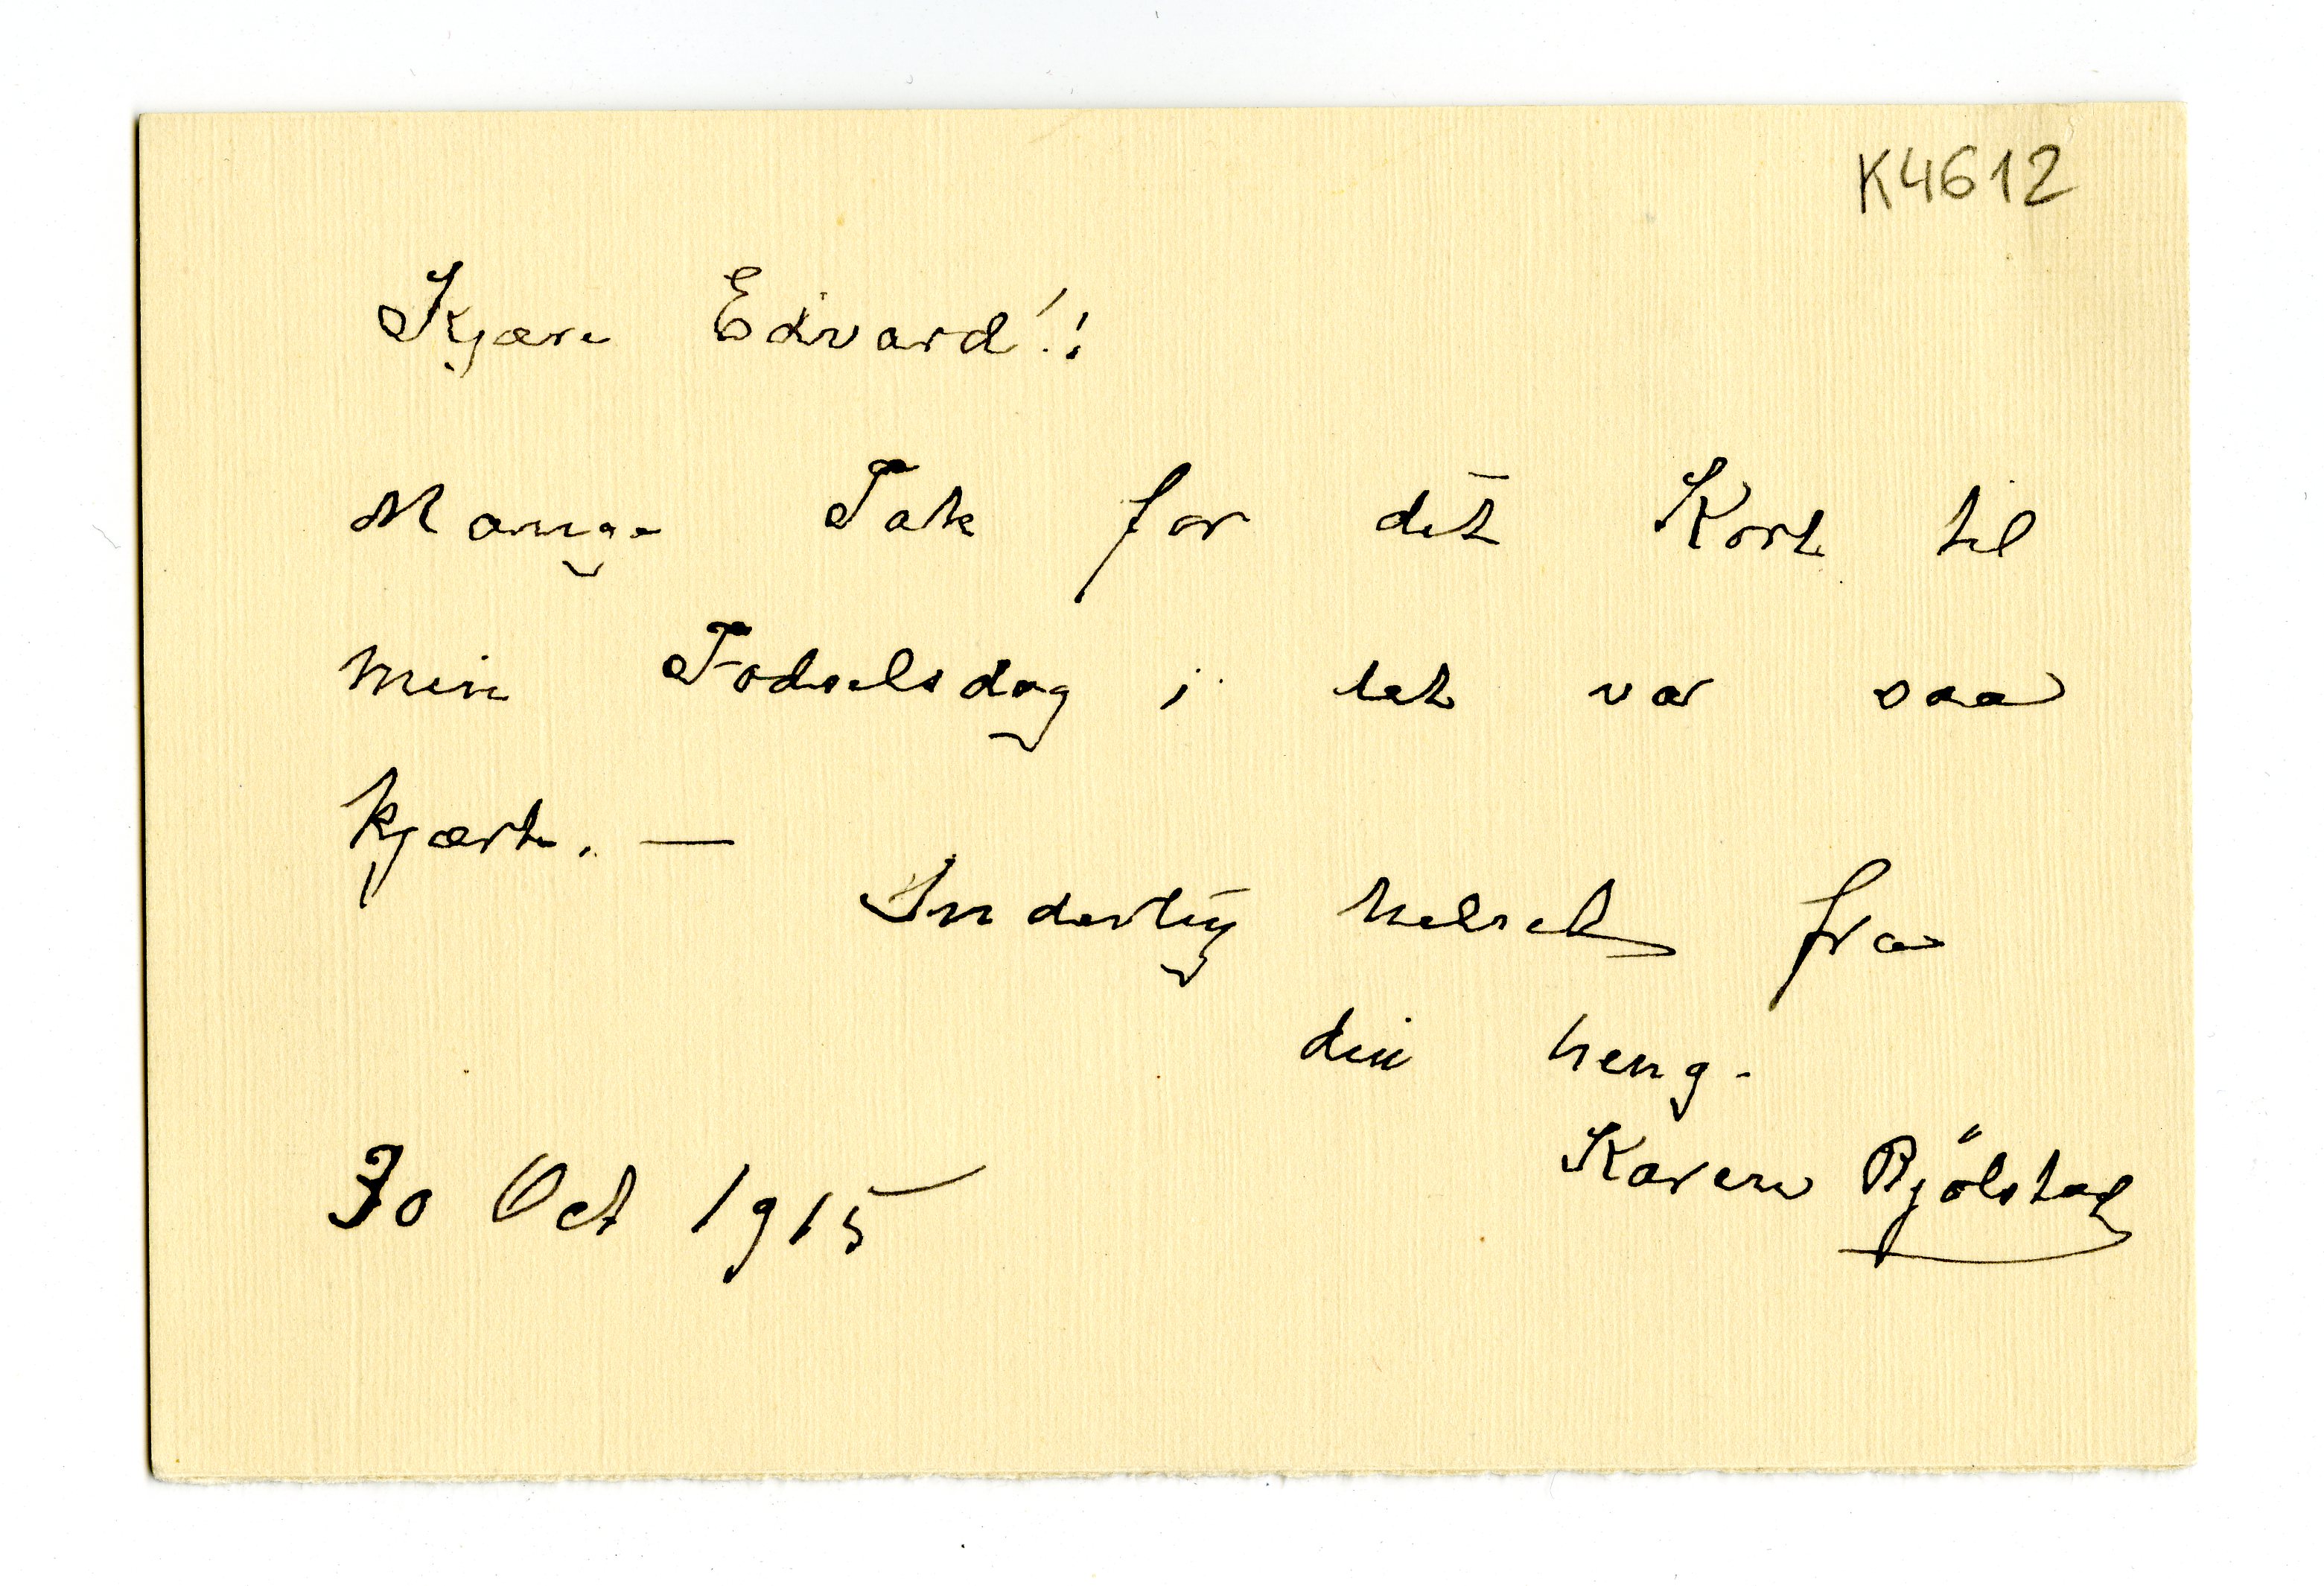 K4612
Kjære Edvard!!
Mange Tak for dit Kort til
min Fødselsdag ; det var saa
kjært. —
Inderlig helset fra
din heng.
Karen Bjölstad
30 Oct 1915